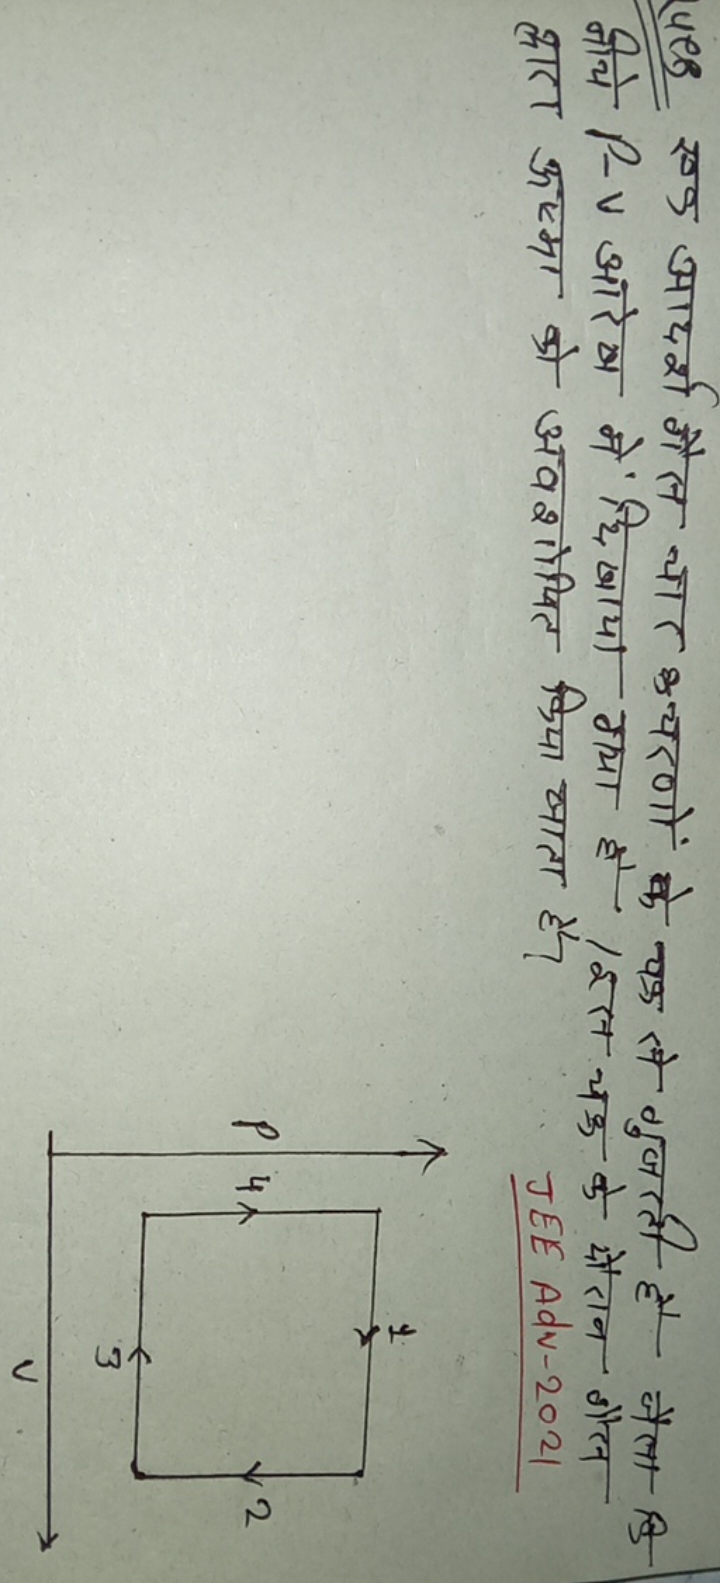 Ques एक आदर्श गैस चार चरणों के चक्र से गुजरती है जैसा कि
नीचे P-V आरेख में दिखाया गया है। इस चक्र के दौरान गैस
द्वारा ऊष्मा को अवशोषित किया जाता है?
JEE Adv-2021
P
4
1
2
3
V